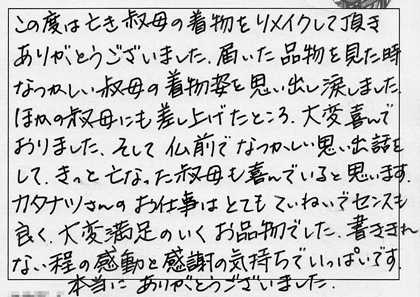 この度はとき叔母の着物をリメイクして頂き
ありがとうございました。届いた品物を見た時
なつかしい叔母の着物姿を思い出し涙しました。
ほかの叔母にも差し上げたところ、大変喜んで
おりました、そして仏前でなつかしい思い出話を
して、きっと亡なった叔母も喜んでいると思います。
カタナツさんのお仕事はとてもていねいでセンスも
良く、大変満足のいくお品物でした。書ききれ
ない程の感動と感謝の気持ちでいっぱいです。
本当にありがとうございました。